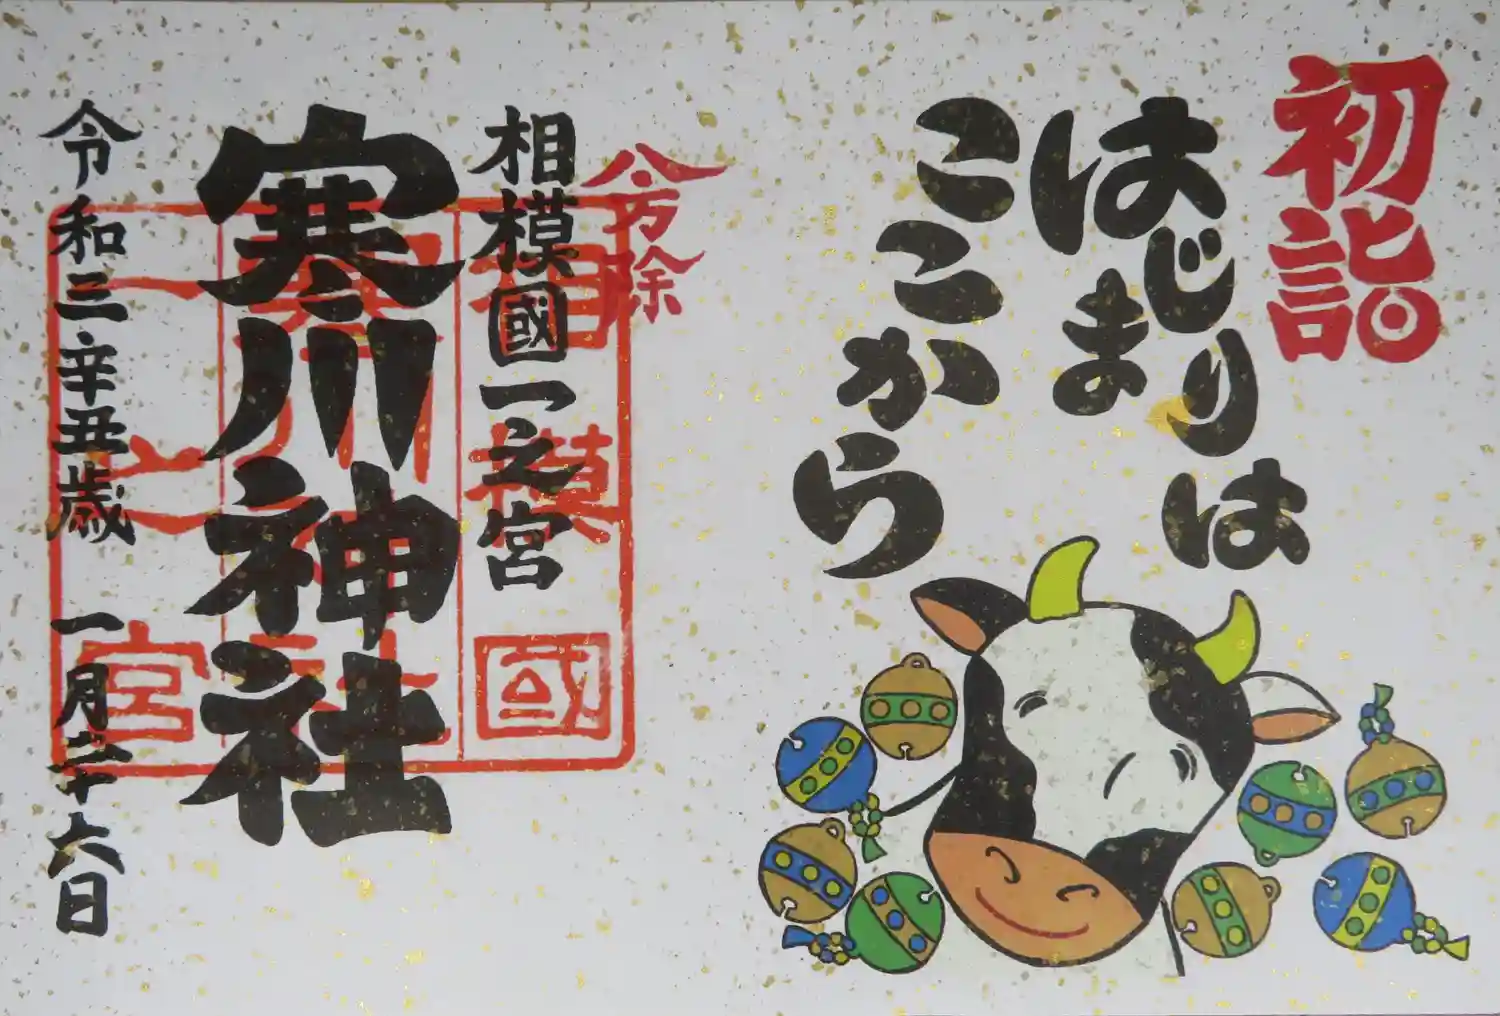 初詣
はじまりは
ここから
八方除
相模國一之宮
寒川神社
相模國
一之宮
令和三辛丑歳 一月二十六日